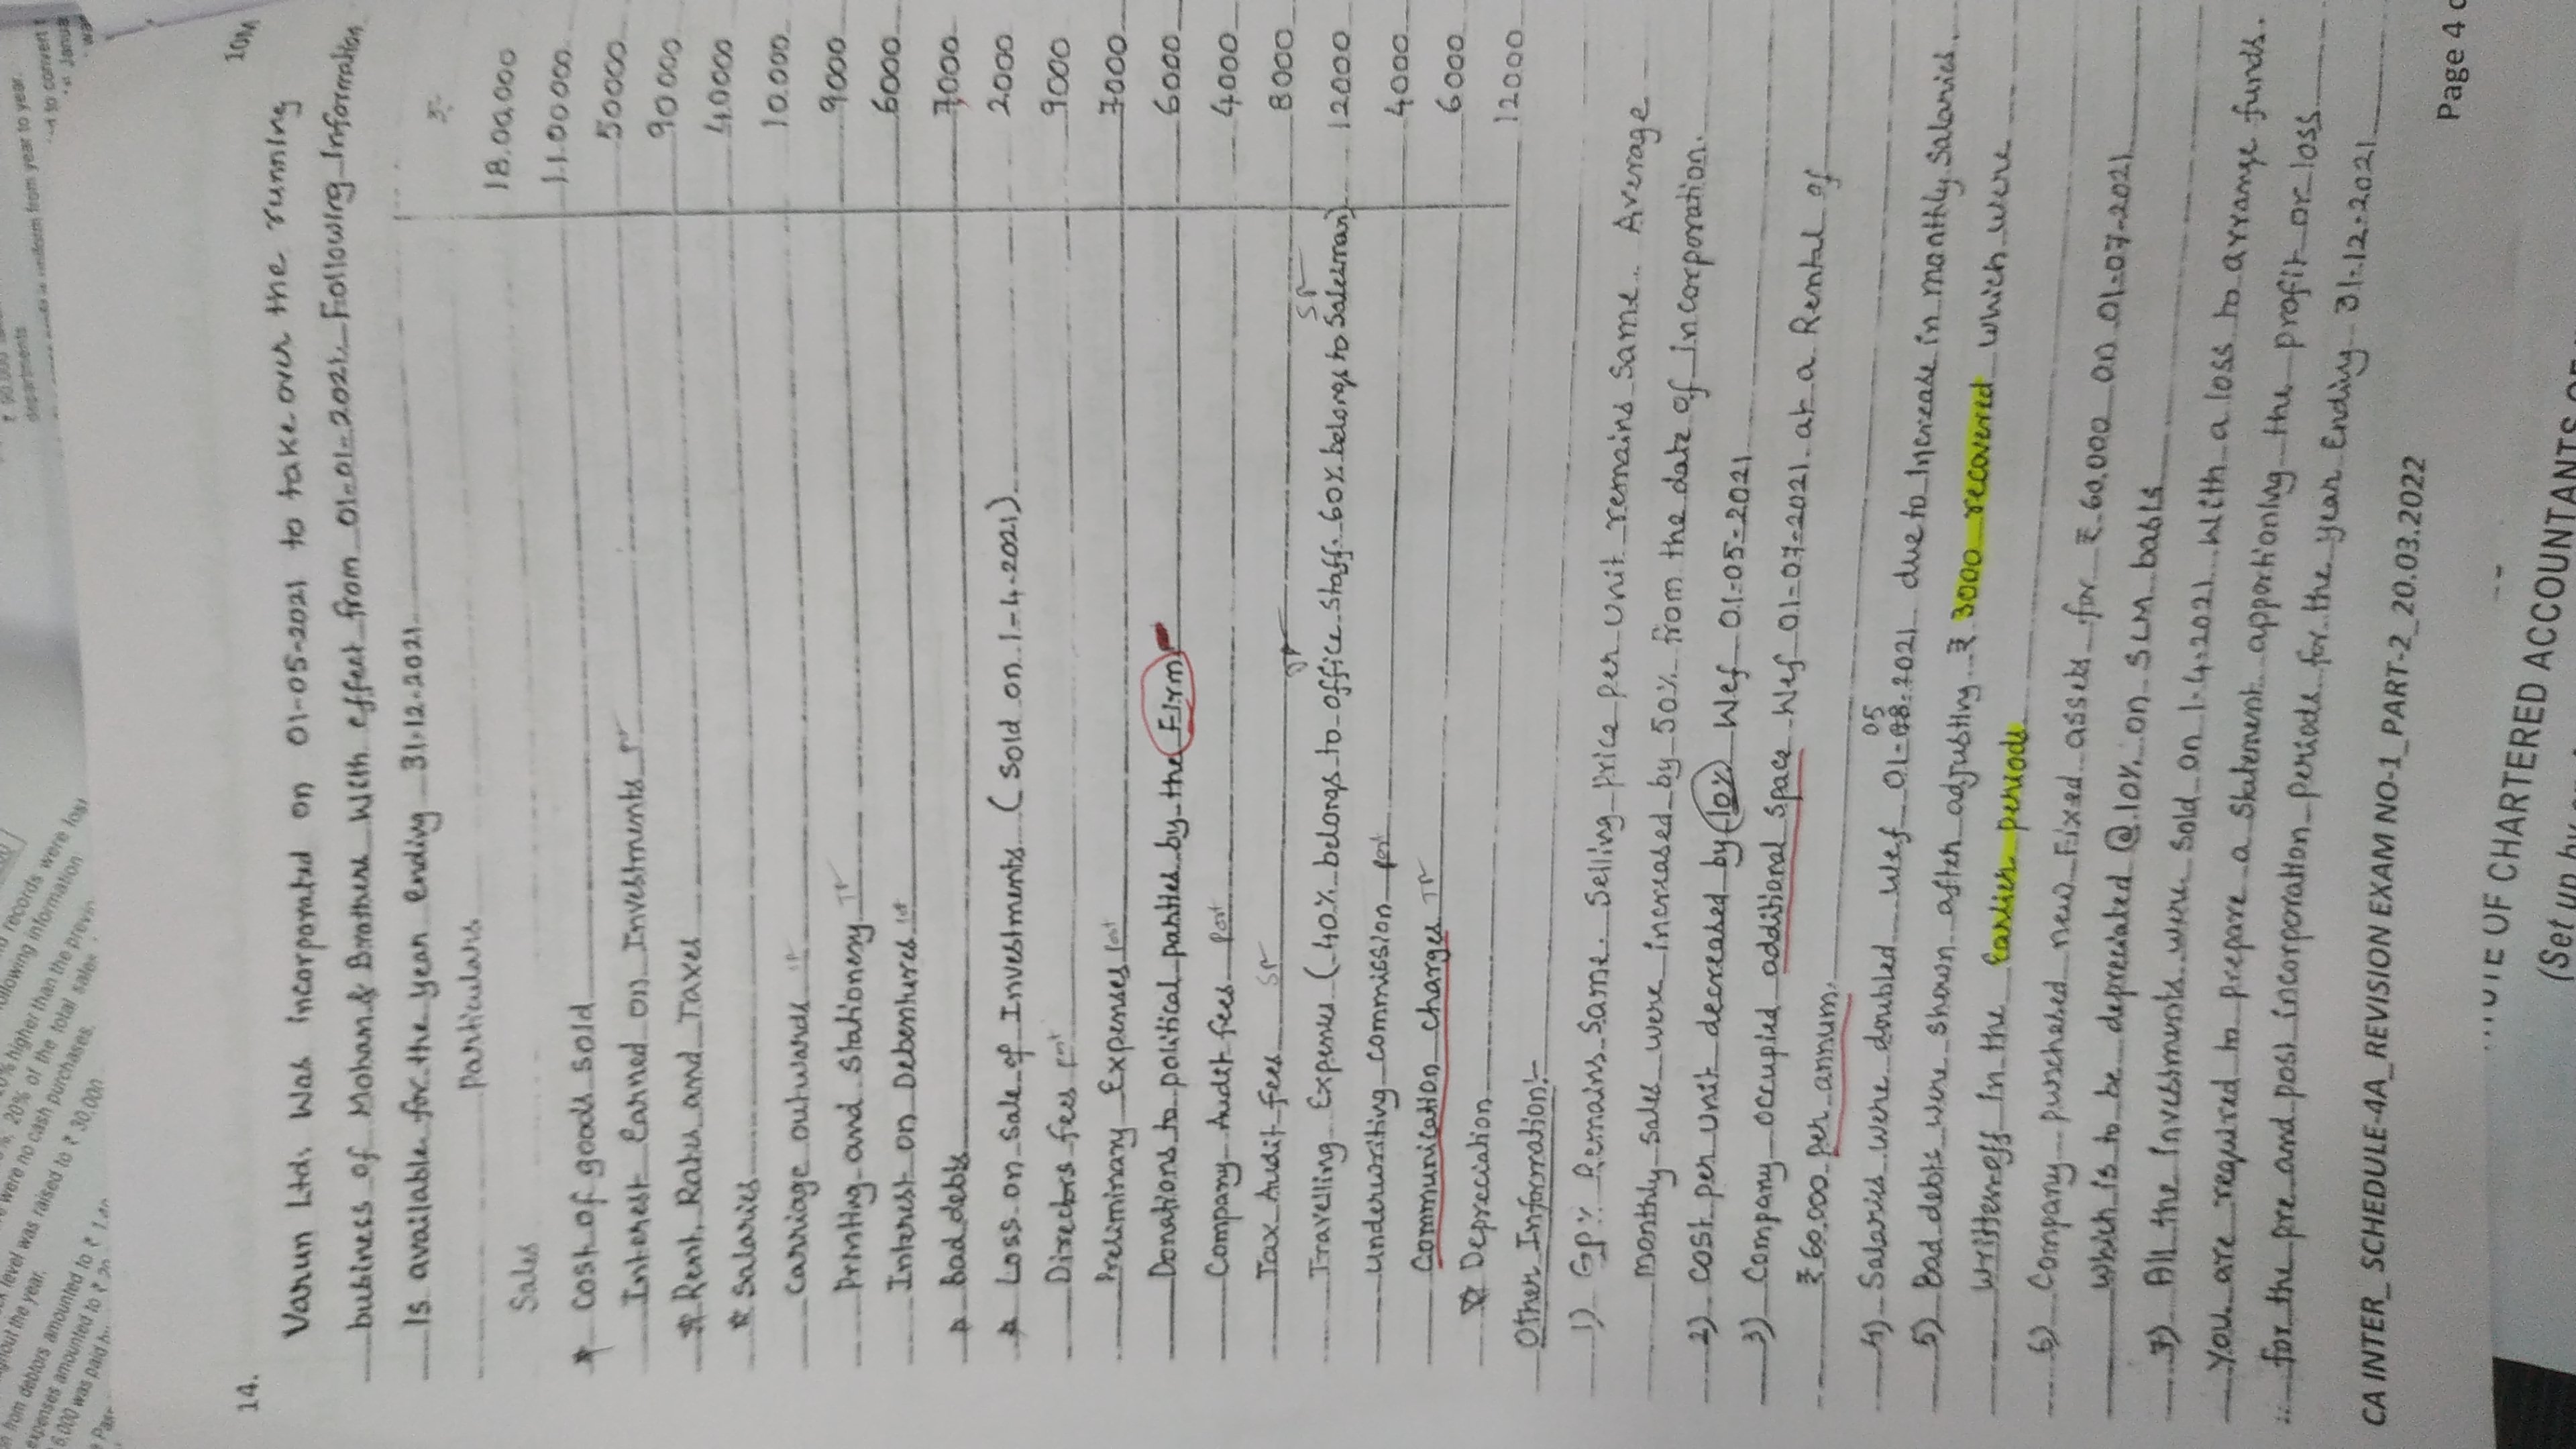 14.
10M
Varun Ltd. Was incorporated on 01-05-2021 to take over the running
business of Mohan & Brothers With effect from 01-01-2021. Following Information
Is available for the year ending 31.12.2021
Particulars ₹
Sales 18,00,000
Cost of goods sold 11,00000
Interest Earned on Investments 50000
Rent, Rates and Taxes 90000
Salaries 40000
Carriage outwards 10,000
Printing and stationery TR 9000
Interest on Debentures 6000
Bad debts 7,000
Loss on Sale of Investments (Sold on 1-4-2021) 2000
Directors fees post 9000
Preliminary Expenses post 7000
Donations to political parties by the Firm 6000
Company Audit fees post 4000
Tax Audit fees SR 8000
Travelling Expenses (40% belongs to office staff. 60% belongs to Salesman) 12000
Underwriting commission post 4000
Communication charges TR 6000
Depreciation 12000
Other Information:-
1) GP% Remains Same. Selling Price per Unit remains Same. Average
monthly sales were increased by 50% from the date of incorporation.
2) Cost per unit decreased by 10% Wef 01-05-2021
3) Company occupied additional Space Wef 01-07-2021 at a Rental of
₹ 60,000 per annum.
05
4) Salaries were doubled Wef 01-08-2021 due to Increase in monthly Salaries.
5) Bad debts were shown after adjusting ₹ 3000 recovered which were
written off In the Earlier periods
6) Company purchased new Fixed assets for ₹ 60,000 on 01-07-2021
which is to be depreciated @ 10% on SLM basis
7) All the Investments were Sold on 1.4.2021 with a loss to arrange funds.
You are required to prepare a Statement apportioning the profit or loss
for the pre and post incorporation periods for the year Ending 31-12-2021
CA INTER_ SCHEDULE-4A_REVISION EXAM NO-1_PART-2_20.03.2022
Page 4
UTE OF CHARTERED ACCOUNTANTS
(Set up by
records were
following information
% higher than the
20% of the total sales
were no cash purchases.
level was raised to ₹ 30,000
from debtors amounted to ₹
expenses amounted to ₹
6,000 was paid
departments
uniform from year to year
from year to year.
to convert